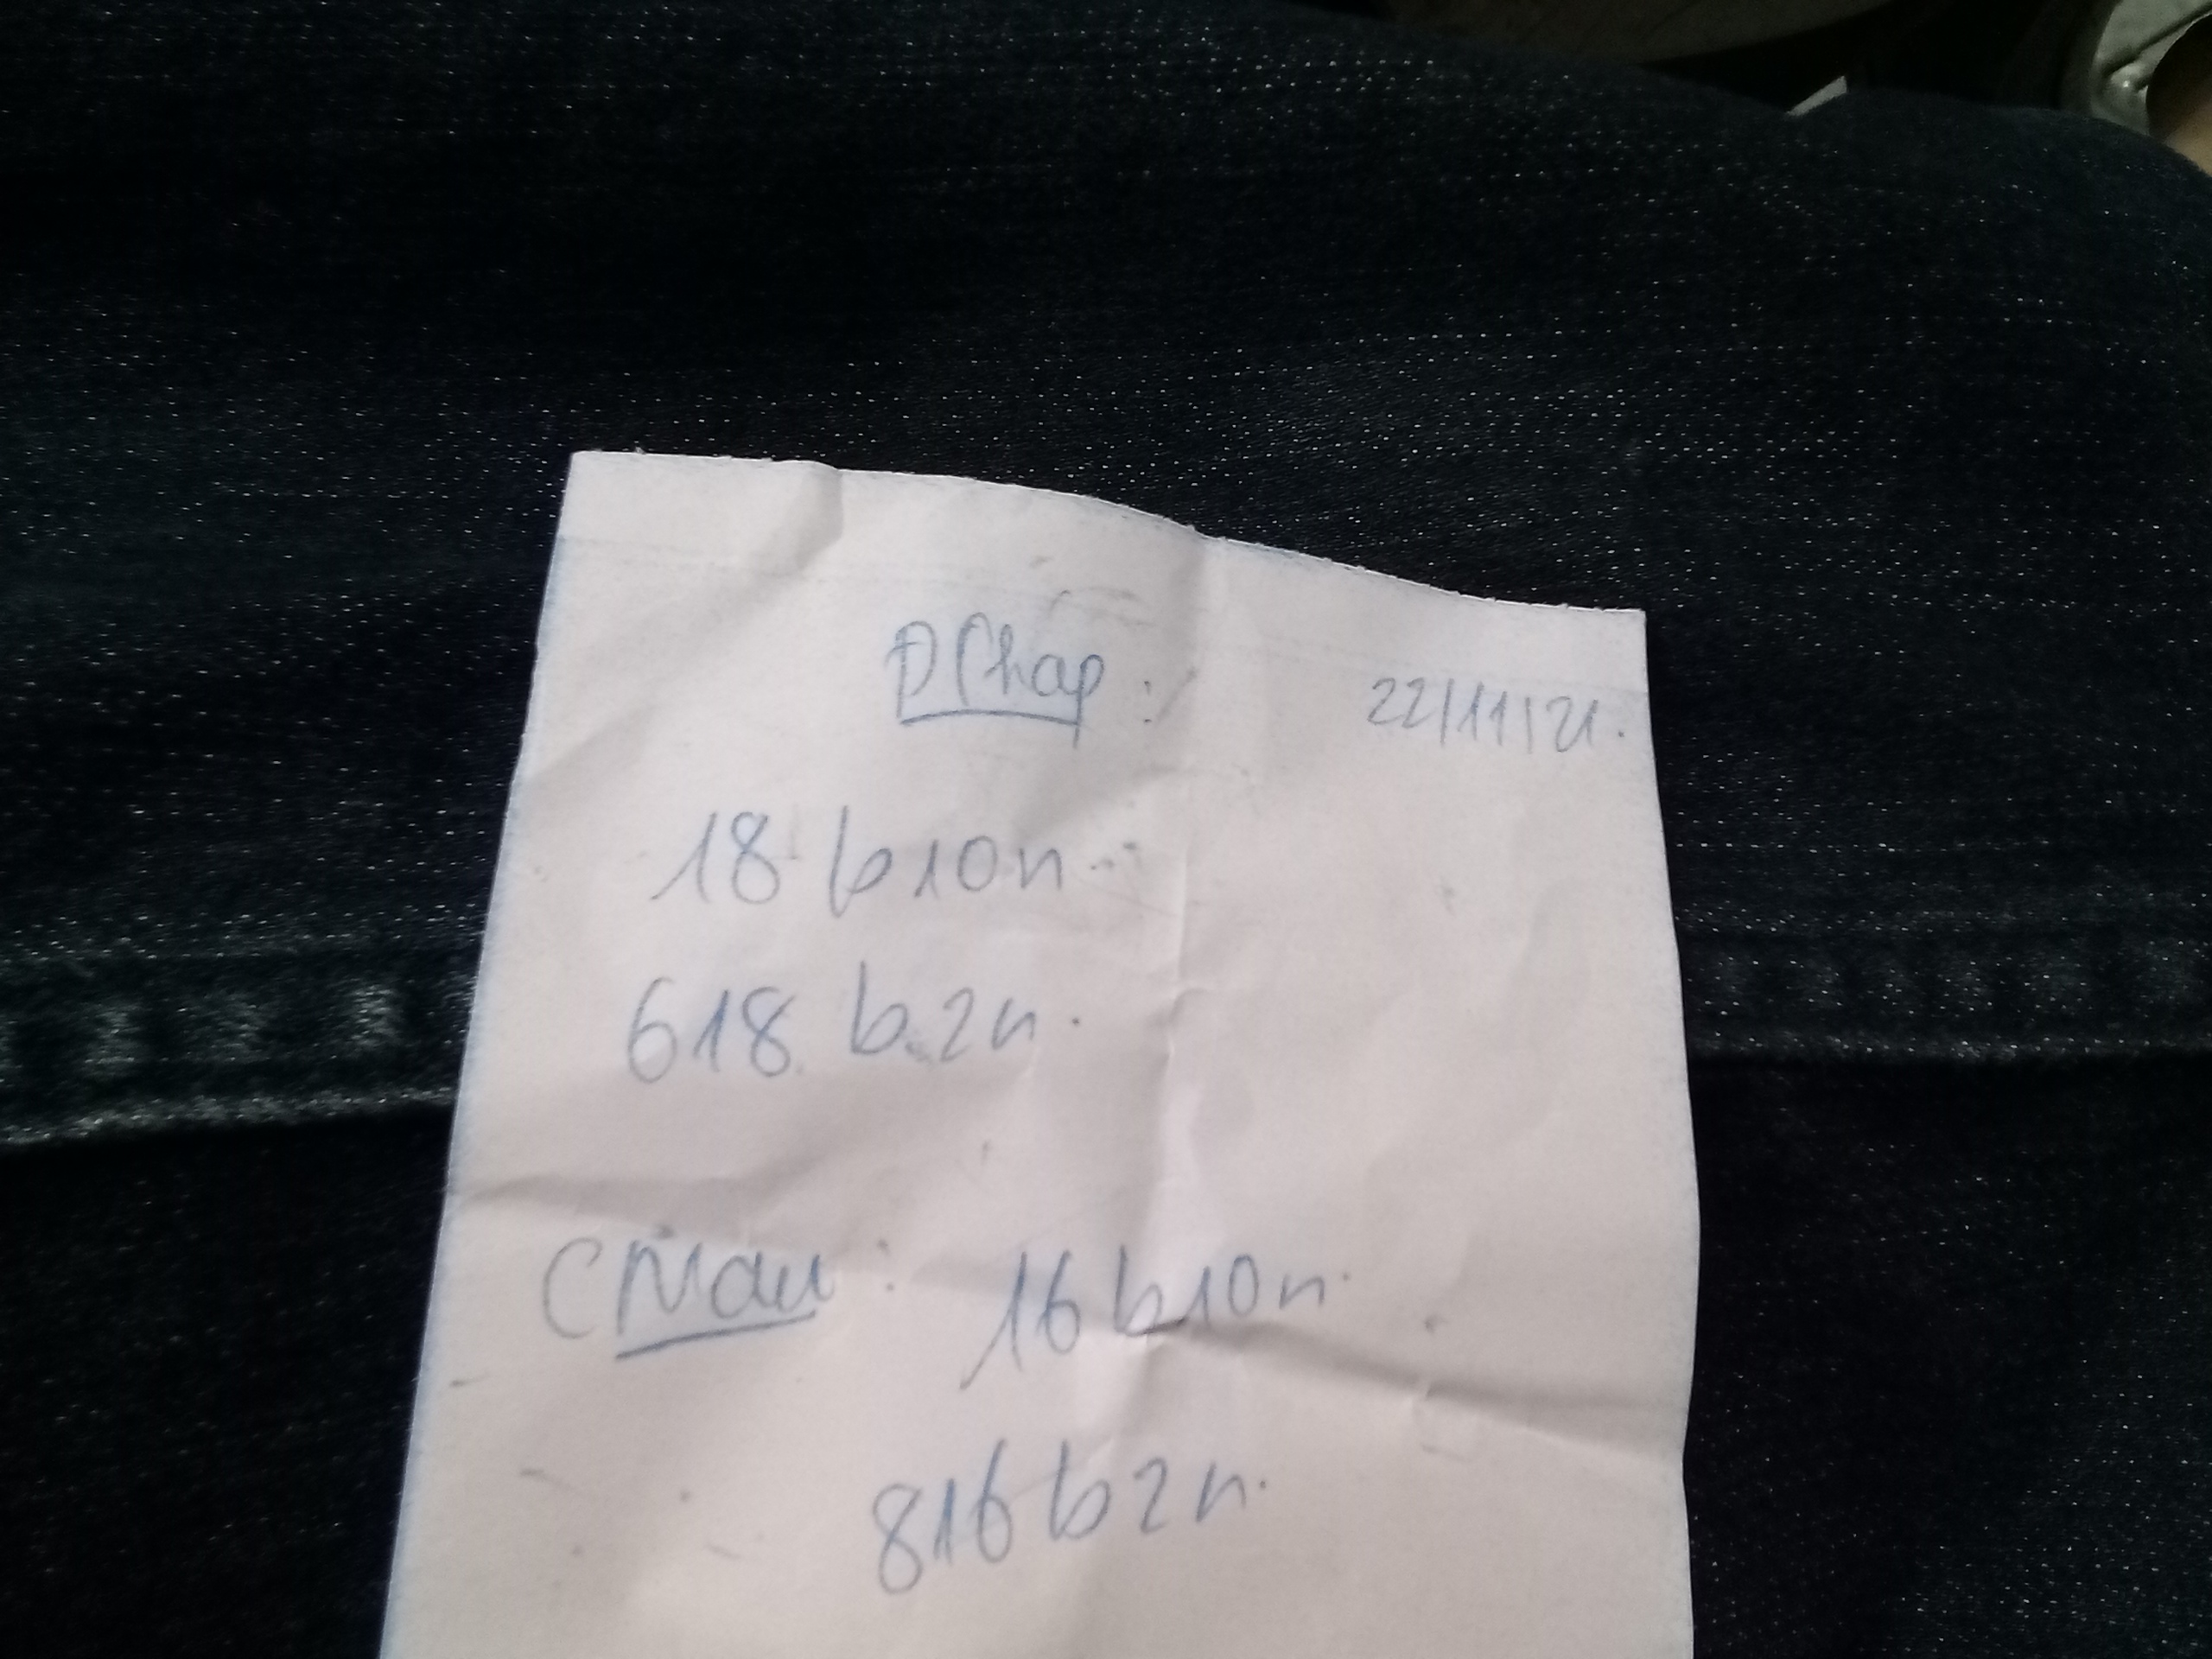 Đ Tháp : 22/11/21.
18 b10n.
618 b2n.
C Mau : 16 b10n.
816 b2n.